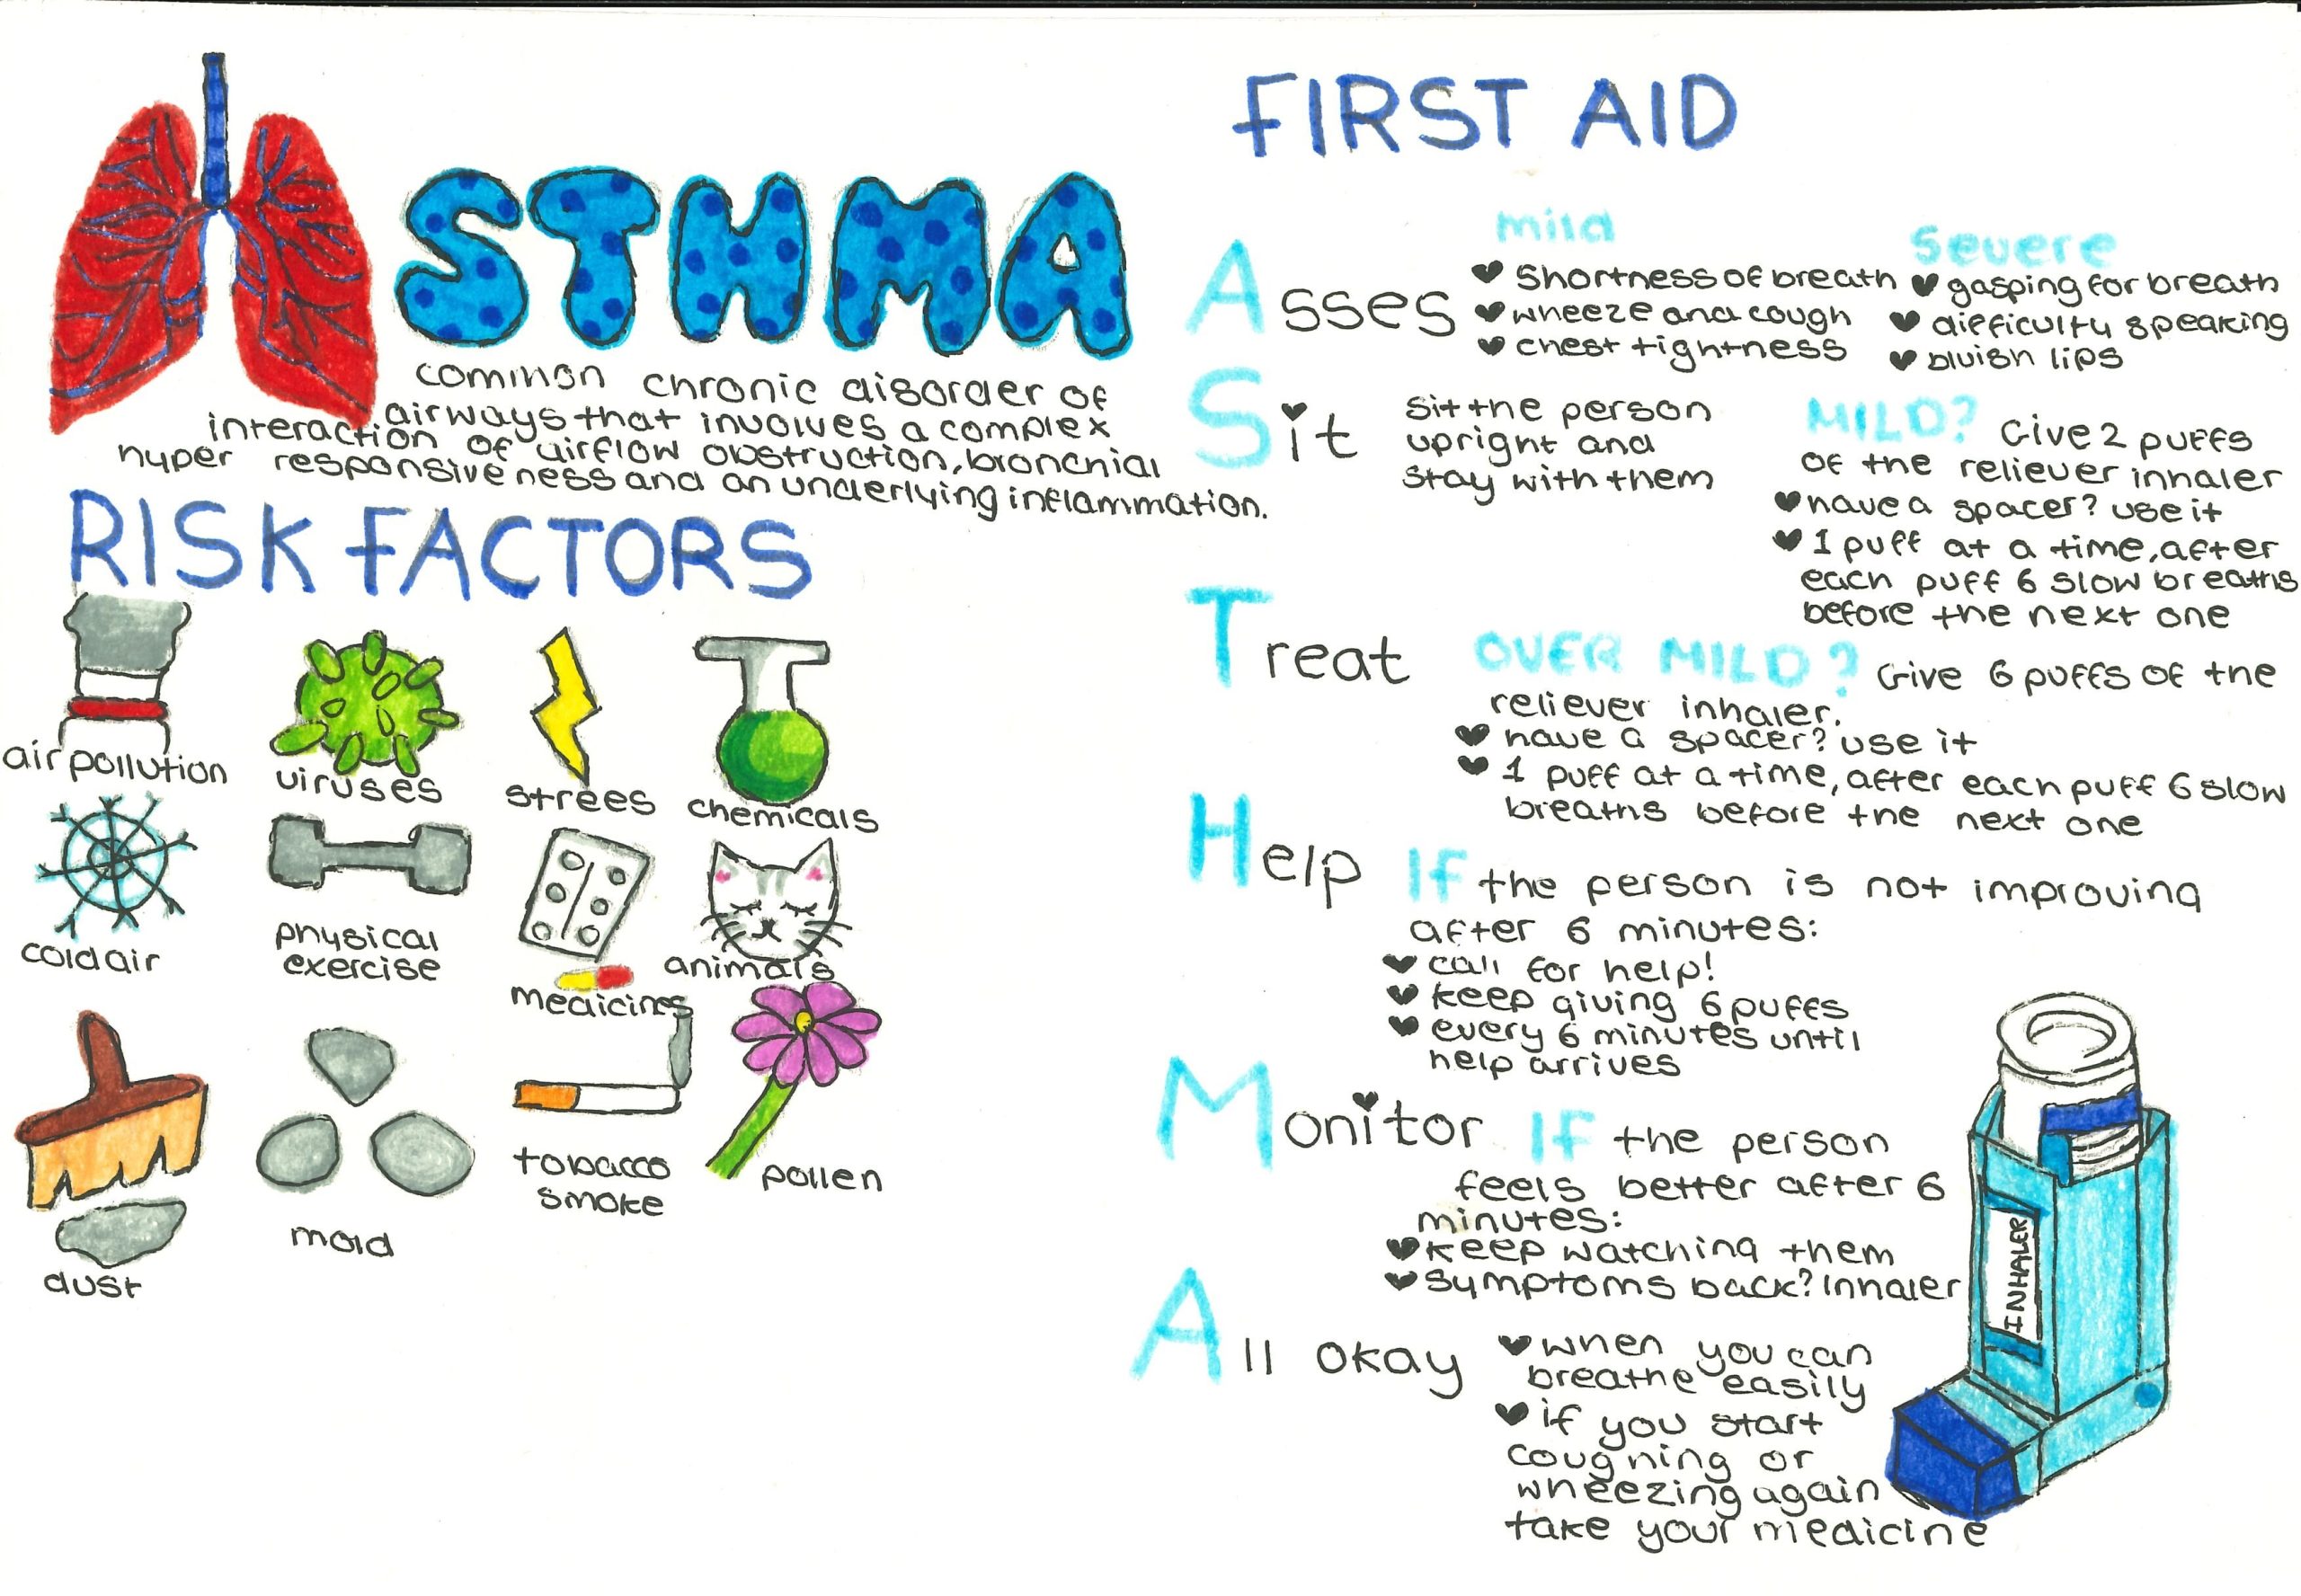 STHMA
common chronic disorder of
airways that involves a complex
interaction of airflow obstruction, bronchial
hyper responsiveness and an underlying inflammation.
RISK FACTORS
air pollution
viruses
strees
chemicals
cold air
physical
exercise
medicines
animals
dust
mold
tobacco
smoke
pollen
FIRST AID
Asses
mild
shortness of breath
wheeze and cough
chest tightness
severe
gasping for breath
difficulty speaking
bluish lips
Sit
sit the person
upright and
stay with them
Treat
MILD? Give 2 puffs
of the reliever inhaler
have a spacer? use it
1 puff at a time, after
each puff 6 slow breaths
before the next one
OVER MILD? Give 6 puffs of the
reliever inhaler.
have a spacer? use it
1 puff at a time, after each puff 6 slow
breaths before the next one
Help
If the person is not improving
after 6 minutes:
call for help!
keep giving 6 puffs
every 6 minutes until
help arrives
Monitor
If the person
feels better after 6
minutes:
keep watching them
symptoms back? Inhaler
All okay
when you can
breathe easily
if you start
coughing or
wheezing again
take your medicine
INHALER